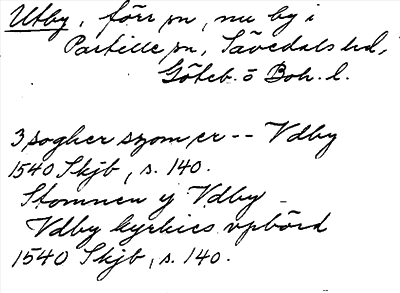 Utby, förr sn, nu by i
Partille sn, Sävedals hd,
Göteb. o Boh. l.
3 sogher szom er -- Vdby
1540 Skjb, s. 140.
Stomnen y Vdby -
Vdby kyrkies vpbörd
1540 Skjb, s. 140.